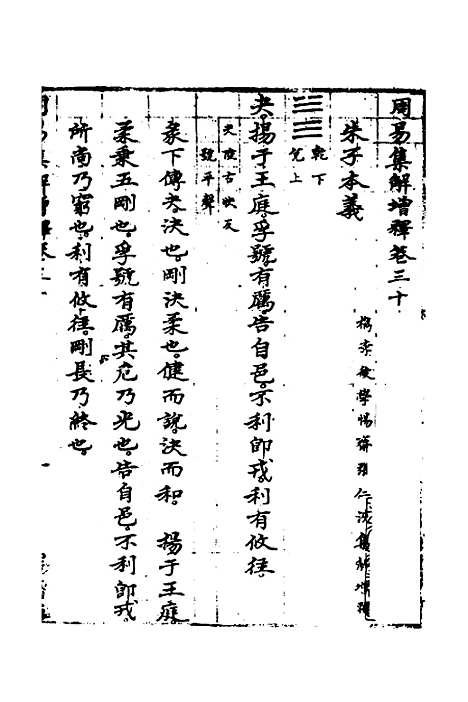 周易集解增釋卷三十
朱子本義
後學惕齋張仁浹集解增釋
乾下
兌上
夬揚于王庭孚號有厲告自邑不利即戎利有攸往
夬陸古快反
號平聲
彖下傳夬決也剛決柔也健而說決而和 揚于王庭
柔乘五剛也孚號有厲其危乃光也告自邑不利即戎
所尚乃窮也利有攸往剛長乃終也